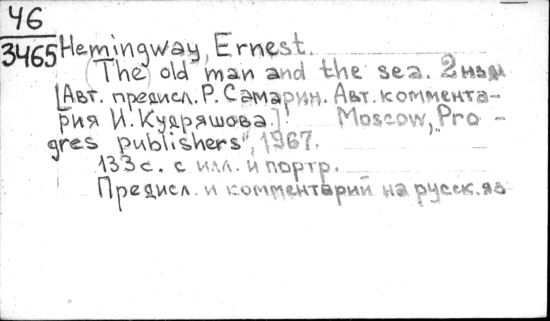 46
3465
Hemingway, Ernest.
(The) old man and the sea. 2 изд
[Авт. предисл. Р. Самарин. Авт. коммента-
рия И. Кудряшова.] Moscow, "Pro -
gres publishers", 1967.
133 с. с илл. и портр.
Предисл. и комментарий на русск. яз